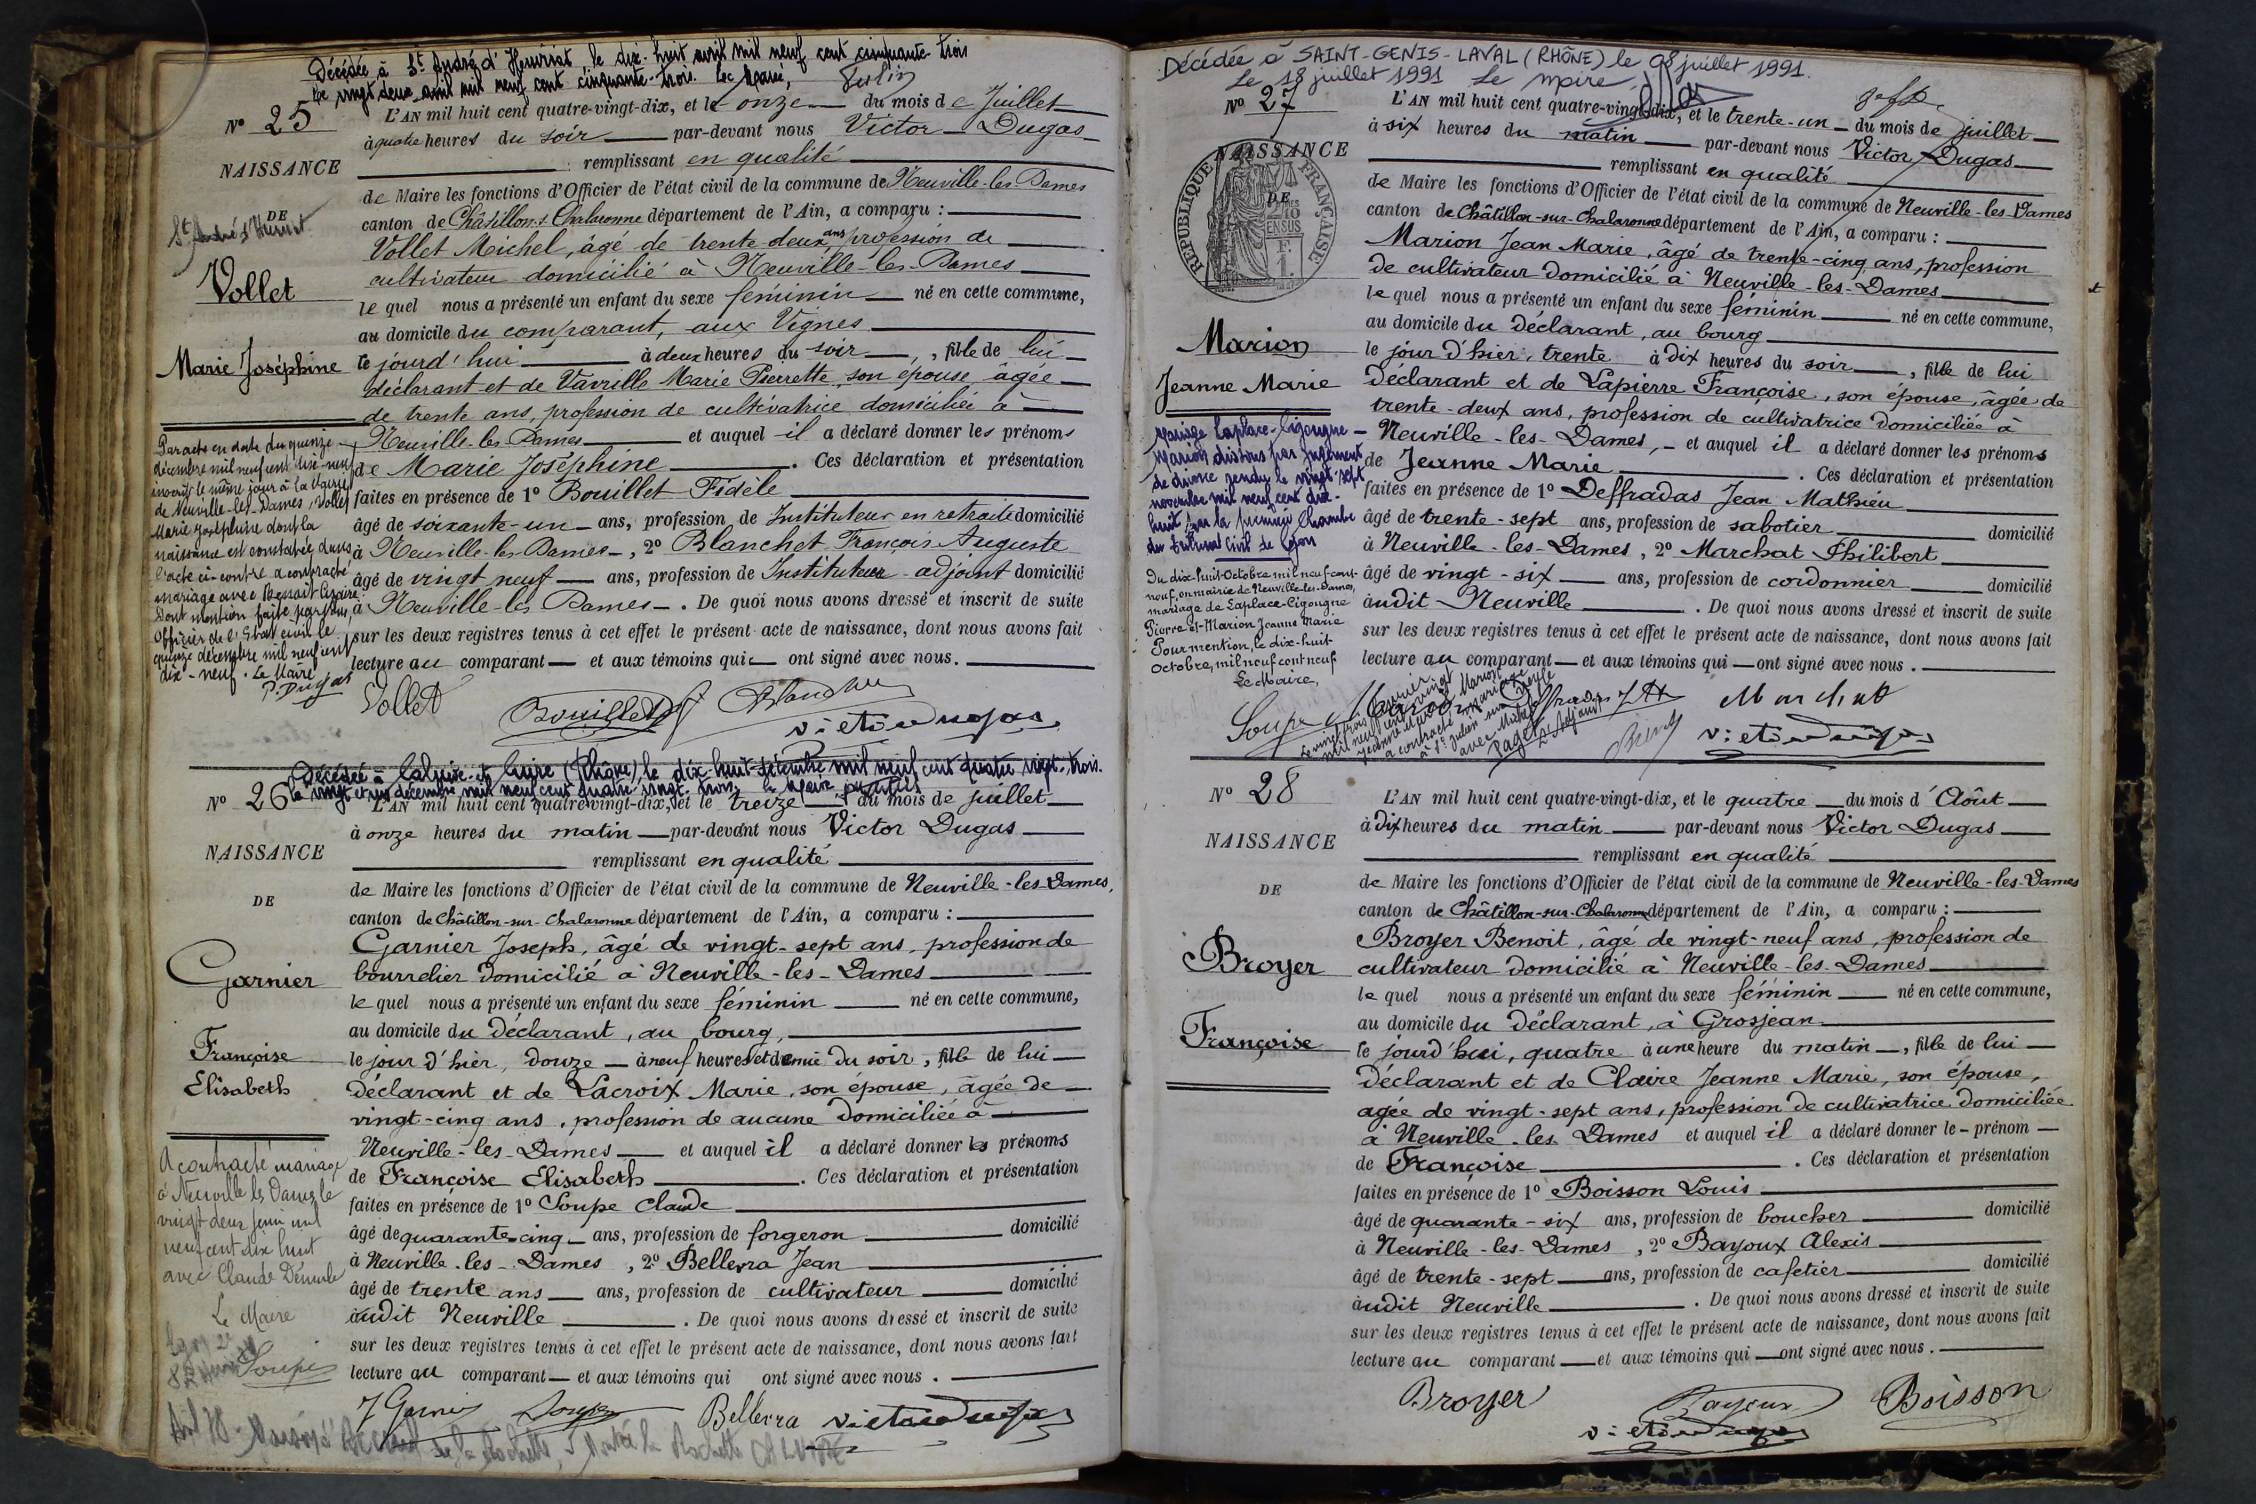 Décédée à St André d'Huiriat, le dix-huit avril mil neuf cent cinquante-trois
Le vingt deux avril mil neuf cent cinquante-trois. Le Maire,
N° 25
NAISSANCE
DE
St André d'Huiriat
Vollet
Marie Joséphine
L'AN mil huit cent quatre-vingt-dix, et le onze du mois de Juillet
à quatre heures du soir par-devant nous Victor Dugas
remplissant en qualité
de Maire les fonctions d'Officier de l'état civil de la commune de Neuville-les-Dames
canton de Châtillon-s-Chalaronne département de l'Ain, a comparu :
Vollet Michel, âgé de trente-deux ans, profession de
cultivateur domicilié à Neuville-les-Dames
le quel nous a présenté un enfant du sexe féminin né en cette commune,
au domicile du comparant, aux Vignes
le jourd'hui à deux heures du soir, fille de lui
déclarant et de Vavrille Marie Pierrette, son épouse âgée
de trente ans, profession de cultivatrice domiciliée à
Neuville-les-Dames et auquel il a déclaré donner les prénoms
de Marie Joséphine. Ces déclaration et présentation
faites en présence de 1° Bouillet Fidèle
âgé de soixante-un ans, profession de Instituteur en retraite domicilié
à Neuville-les-Dames, 2° Blanchet François Auguste
âgé de vingt neuf ans, profession de Instituteur-adjoint domicilié
à Neuville-les-Dames. De quoi nous avons dressé et inscrit de suite
sur les deux registres tenus à cet effet le présent acte de naissance, dont nous avons fait
lecture au comparant et aux témoins qui ont signé avec nous.
Par acte en date du quinze
décembre mil neuf cent dix-neuf
inscrit le même jour à la Mairie
de Neuville-les-Dames, Vollet
Marie Joséphine dont la
naissance est constatée dans
l'acte ci-contre a contracté
mariage avec
Dont mention faite par nous,
Officier de l'Etat civil le
quinze décembre mil neuf cent
dix-neuf. Le Maire
P. Dugas
Vollet Bouillet Blanchet
Victor Dugas
Décédée à Caluire-et-Cuire (Rhône), le dix-huit décembre mil neuf cent quatre vingt-trois.
Le vingt et un décembre mil neuf cent quatre vingt-trois. le Maire
N° 26
NAISSANCE
DE
Garnier
Françoise
Elisabeth
L'AN mil huit cent quatre-vingt-dix, et le treize du mois de juillet
à onze heures du matin par-devant nous Victor Dugas
remplissant en qualité
de Maire les fonctions d'Officier de l'état civil de la commune de Neuville-les-Dames,
canton de Châtillon-sur-Chalaronne département de l'Ain, a comparu :
Garnier Joseph, âgé de vingt-sept ans, profession de
bourrelier domicilié à Neuville-les-Dames
le quel nous a présenté un enfant du sexe féminin né en cette commune,
au domicile du déclarant, au bourg,
le jour d'hier, douze à neuf heures et demie du soir, fille de lui
déclarant et de Lacroix Marie, son épouse, âgée de
vingt-cinq ans, profession de aucune domiciliée à
Neuville-les-Dames et auquel il a déclaré donner les prénoms
de Françoise Elisabeth. Ces déclaration et présentation
faites en présence de 1° Soupe Claude
âgé de quarante-cinq ans, profession de forgeron domicilié
à Neuville-les-Dames, 2° Bellevra Jean
âgé de trente ans ans, profession de cultivateur domicilié
audit Neuville. De quoi nous avons dressé et inscrit de suite
sur les deux registres tenus à cet effet le présent acte de naissance, dont nous avons fait
lecture au comparant et aux témoins qui ont signé avec nous.
A contracté mariage
à Neuville les Dames le
vingt deux juin mil
neuf cent dix huit
avec Claude
Le Maire
Soupe
J Garnier Soupe Bellevra Victor Dugas
Décédée à SAINT-GENIS-LAVAL (RHÔNE) le 08 juillet 1991.
Le 18 juillet 1991 Le Maire
N° 27
NAISSANCE
DE
REPUBLIQUE FRANÇAISE
Marion
Jeanne Marie
L'AN mil huit cent quatre-vingt-dix, et le trente-un du mois de juillet
à six heures du matin par-devant nous Victor Dugas
remplissant en qualité
de Maire les fonctions d'Officier de l'état civil de la commune de Neuville-les-Dames
canton de Châtillon-sur-Chalaronne département de l'Ain, a comparu :
Marion Jean Marie, âgé de trente-cinq ans, profession
de cultivateur domicilié à Neuville-les-Dames
le quel nous a présenté un enfant du sexe féminin né en cette commune,
au domicile du déclarant, au bourg
le jour d'hier, trente à dix heures du soir, fille de lui
déclarant et de Lapierre Françoise, son épouse, âgée de
trente-deux ans, profession de cultivatrice domiciliée à
Neuville-les-Dames, et auquel il a déclaré donner les prénoms
de Jeanne Marie. Ces déclaration et présentation
faites en présence de 1° Deffradas Jean Mathieu
âgé de trente-sept ans, profession de sabotier domicilié
à Neuville-les-Dames, 2° Marchat Philibert
âgé de vingt-six ans, profession de cordonnier domicilié
audit Neuville. De quoi nous avons dressé et inscrit de suite
sur les deux registres tenus à cet effet le présent acte de naissance, dont nous avons fait
lecture au comparant et aux témoins qui ont signé avec nous.
Mariage Laplace-Cigougne
Marion dissous par Jugement
de divorce rendu le vingt sept
novembre mil neuf cent dix-
huit par la première Chambre
du tribunal civil de Lyon
Du dix-huit Octobre mil neuf cent
neuf, en mairie de Neuville-les-Dames,
mariage de Laplace-Cigougne
Pierre et Marion Jeanne Marie
Pour mention, le dix-huit
Octobre, mil neuf cent neuf
Le Maire,
Soupe
Le vingt trois
mil neuf cent vingt
Jeanne Marie Marion
a contracté mariage
à St Julien
avec
Paget
L'Adjoint
Marion Deffradas Marchat
Victor Dugas
N° 28
NAISSANCE
DE
Broyer
Françoise
L'AN mil huit cent quatre-vingt-dix, et le quatre du mois d'Août
à dix heures du matin par-devant nous Victor Dugas
remplissant en qualité
de Maire les fonctions d'Officier de l'état civil de la commune de Neuville-les-Dames
canton de Châtillon-sur-Chalaronne département de l'Ain, a comparu :
Broyer Benoit, âgé de vingt-neuf ans, profession de
cultivateur domicilié à Neuville-les-Dames
le quel nous a présenté un enfant du sexe féminin né en cette commune,
au domicile du déclarant, à Grosjean
le jourd'hui, quatre à une heure du matin, fille de lui
déclarant et de Claire Jeanne Marie, son épouse,
agée de vingt-sept ans, profession de cultivatrice domiciliée
à Neuville-les-Dames et auquel il a déclaré donner le prénom
de Françoise. Ces déclaration et présentation
faites en présence de 1° Boisson Louis
âgé de quarante-six ans, profession de boucher domicilié
à Neuville-les-Dames, 2° Bayoux Alexis
âgé de trente-sept ans, profession de cafetier domicilié
audit Neuville. De quoi nous avons dressé et inscrit de suite
sur les deux registres tenus à cet effet le présent acte de naissance, dont nous avons fait
lecture au comparant et aux témoins qui ont signé avec nous.
Broyer Bayoux Boisson
Victor Dugas